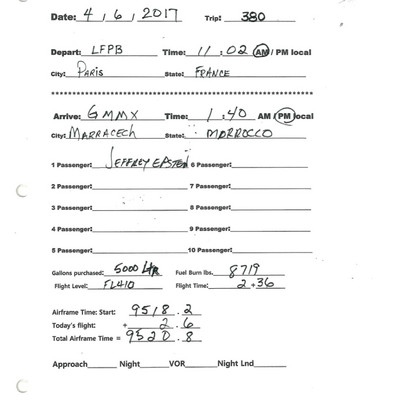 Date: 4 / 6 / 2017 Trip: 380
Depart: LFPB Time: 11 : 02 AM / PM local
City: PARIS State: FRANCE
Arrive: GMMX Time: 1 : 40 AM / PM local
City: MARRACECH State: MORROCCO
1 Passenger: JEFFREY EPSTEIN 6 Passenger:
2 Passenger: 7 Passenger:
3 Passenger: 8 Passenger:
4 Passenger: 9 Passenger:
5 Passenger: 10 Passenger:
Gallons purchased: 5000 LTR Fuel Burn lbs. 8719
Flight Level: FL410 Flight Time: 2 + 36
Airframe Time: Start: 9518 . 2
Today's flight: + 2 . 6
Total Airframe Time = 9520 . 8
Approach Night VOR Night Lnd